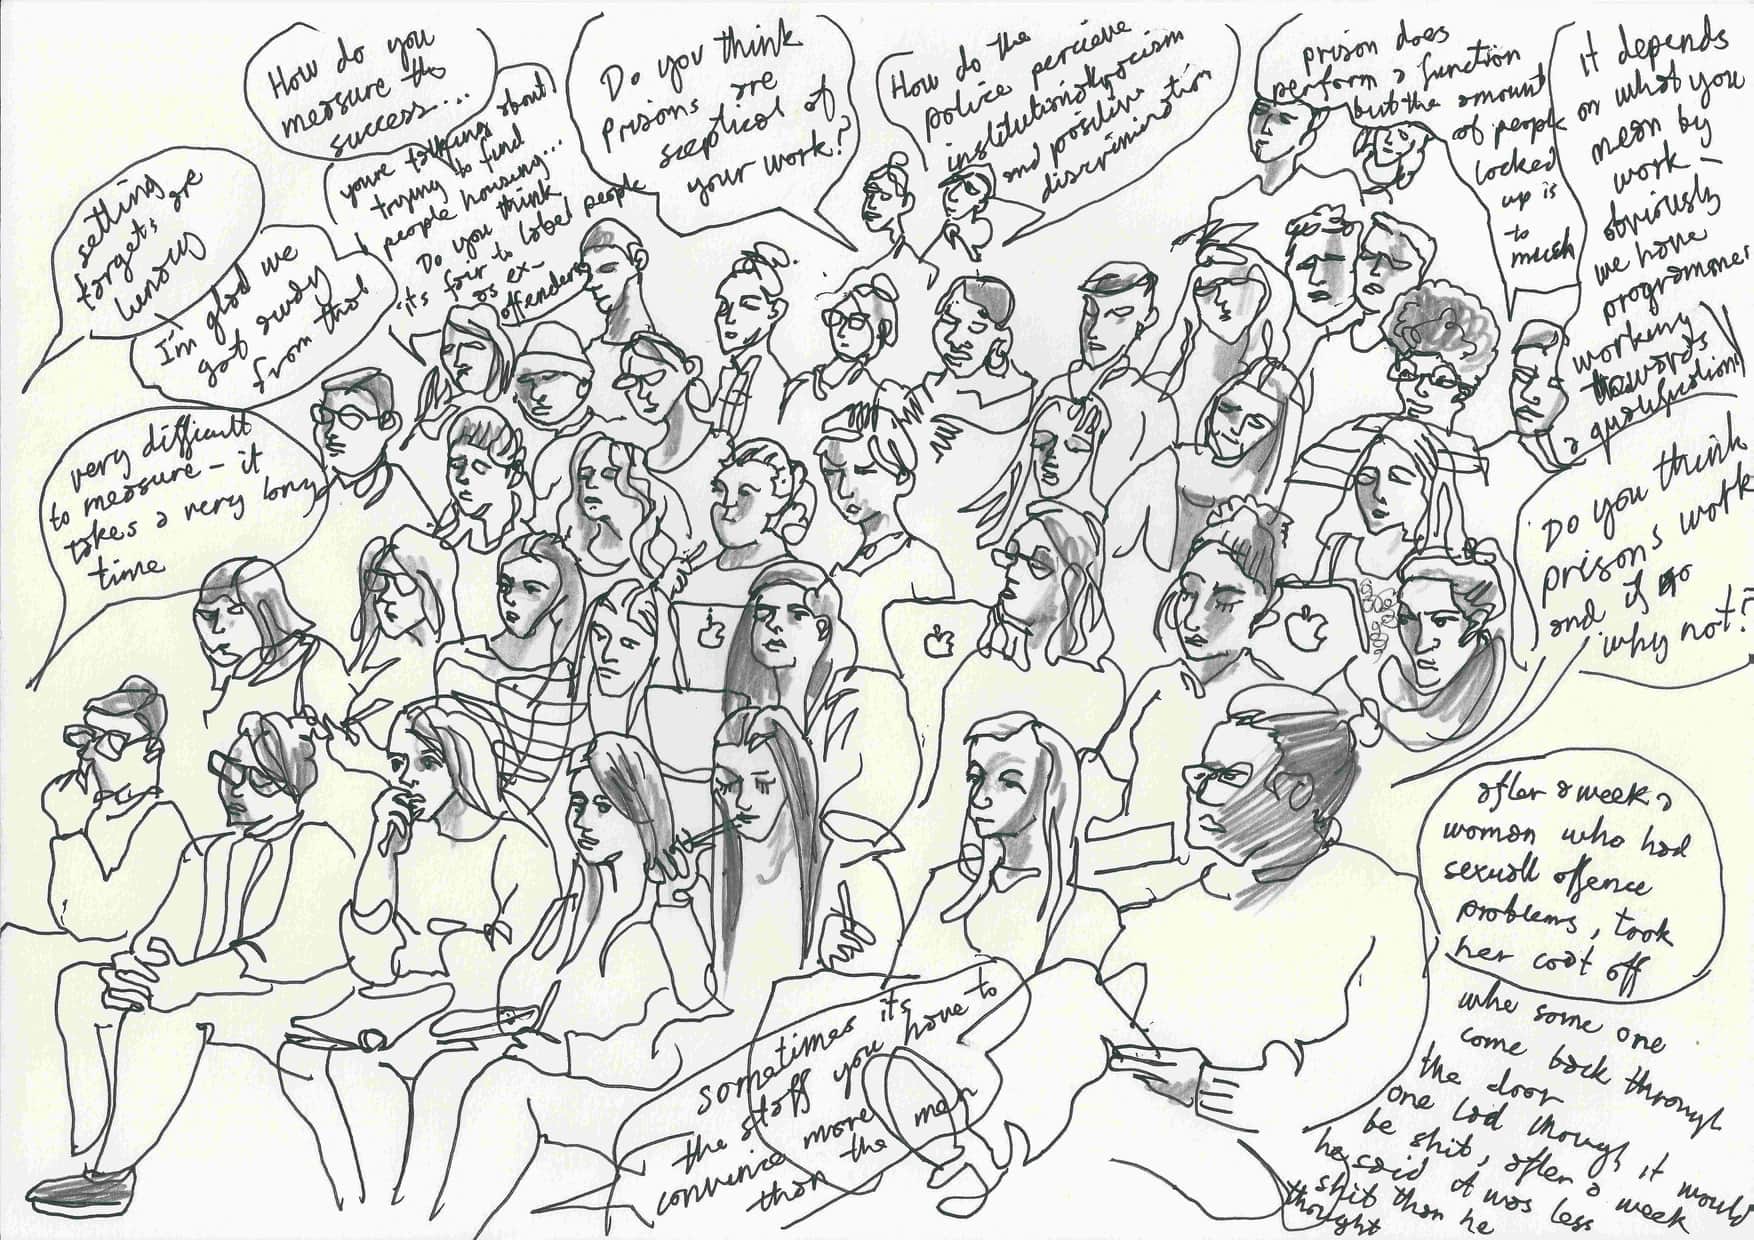 How do you
measure the
success...
you're talking about
trying to fund
people housing...
Do you think
its fair to label people
as ex-
offenders
Do you think
prisons are
sceptical of
your work?
How do the
police percieve
institutional rocism
and positive
discrimination
prison does
perform a function
but the amount
of people
locked
up is
to
much
it depends
on what you
mean by
work –
obviously
we have
programmes
working
towards
a qualification
setting
targets are
lunacy
I'm glad we
got away
from that
very difficult
to measure – it
takes a very long
time
Do you think
prisons work
and if so
why not?
after a week a
woman who had
sexuall offence
problems, took
her coat off
whe some one
come back through
the door
one lad though it would
be shit, after a week
he said it was less
shit than he
thought
sometimes its
the staff you have to
convince more
than the men